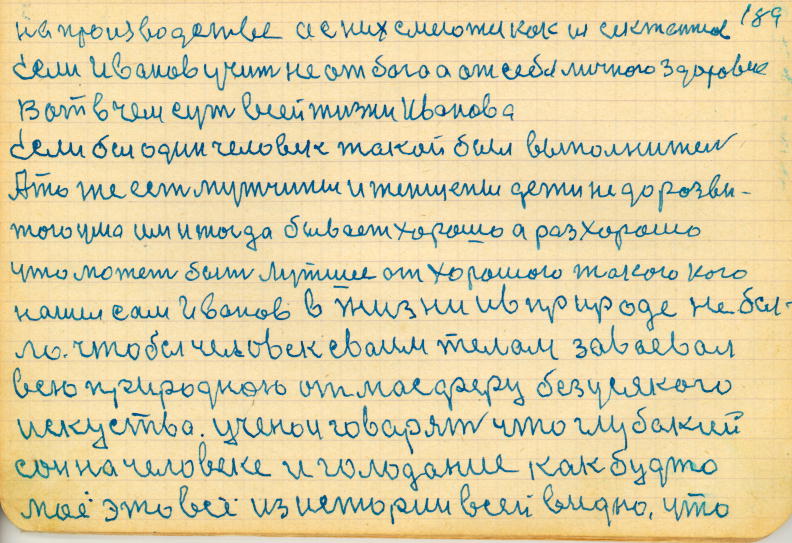 189
на производстве а с них смеютси как и сектентов
Если Иванов учит не от бога а от себя личного здоровие
Вот в чем сут всей жизни Иванова
Если бы один человек такой был выполнител
А то же ест мутчины и женщены дети недорозви-
того ума им иногда бывает хорошо а раз хорошо
что может быт лутшее от хорошого такого кого
нашел сам Иванов в жизни и в природе не был-
ло. чтобы человек сваим телам заваевал
всю природною отмасферу без усякого
искуства. ученои говарят что глубакий
сон на человеке и голодание как будто
маё это всё из истории всей видно, что